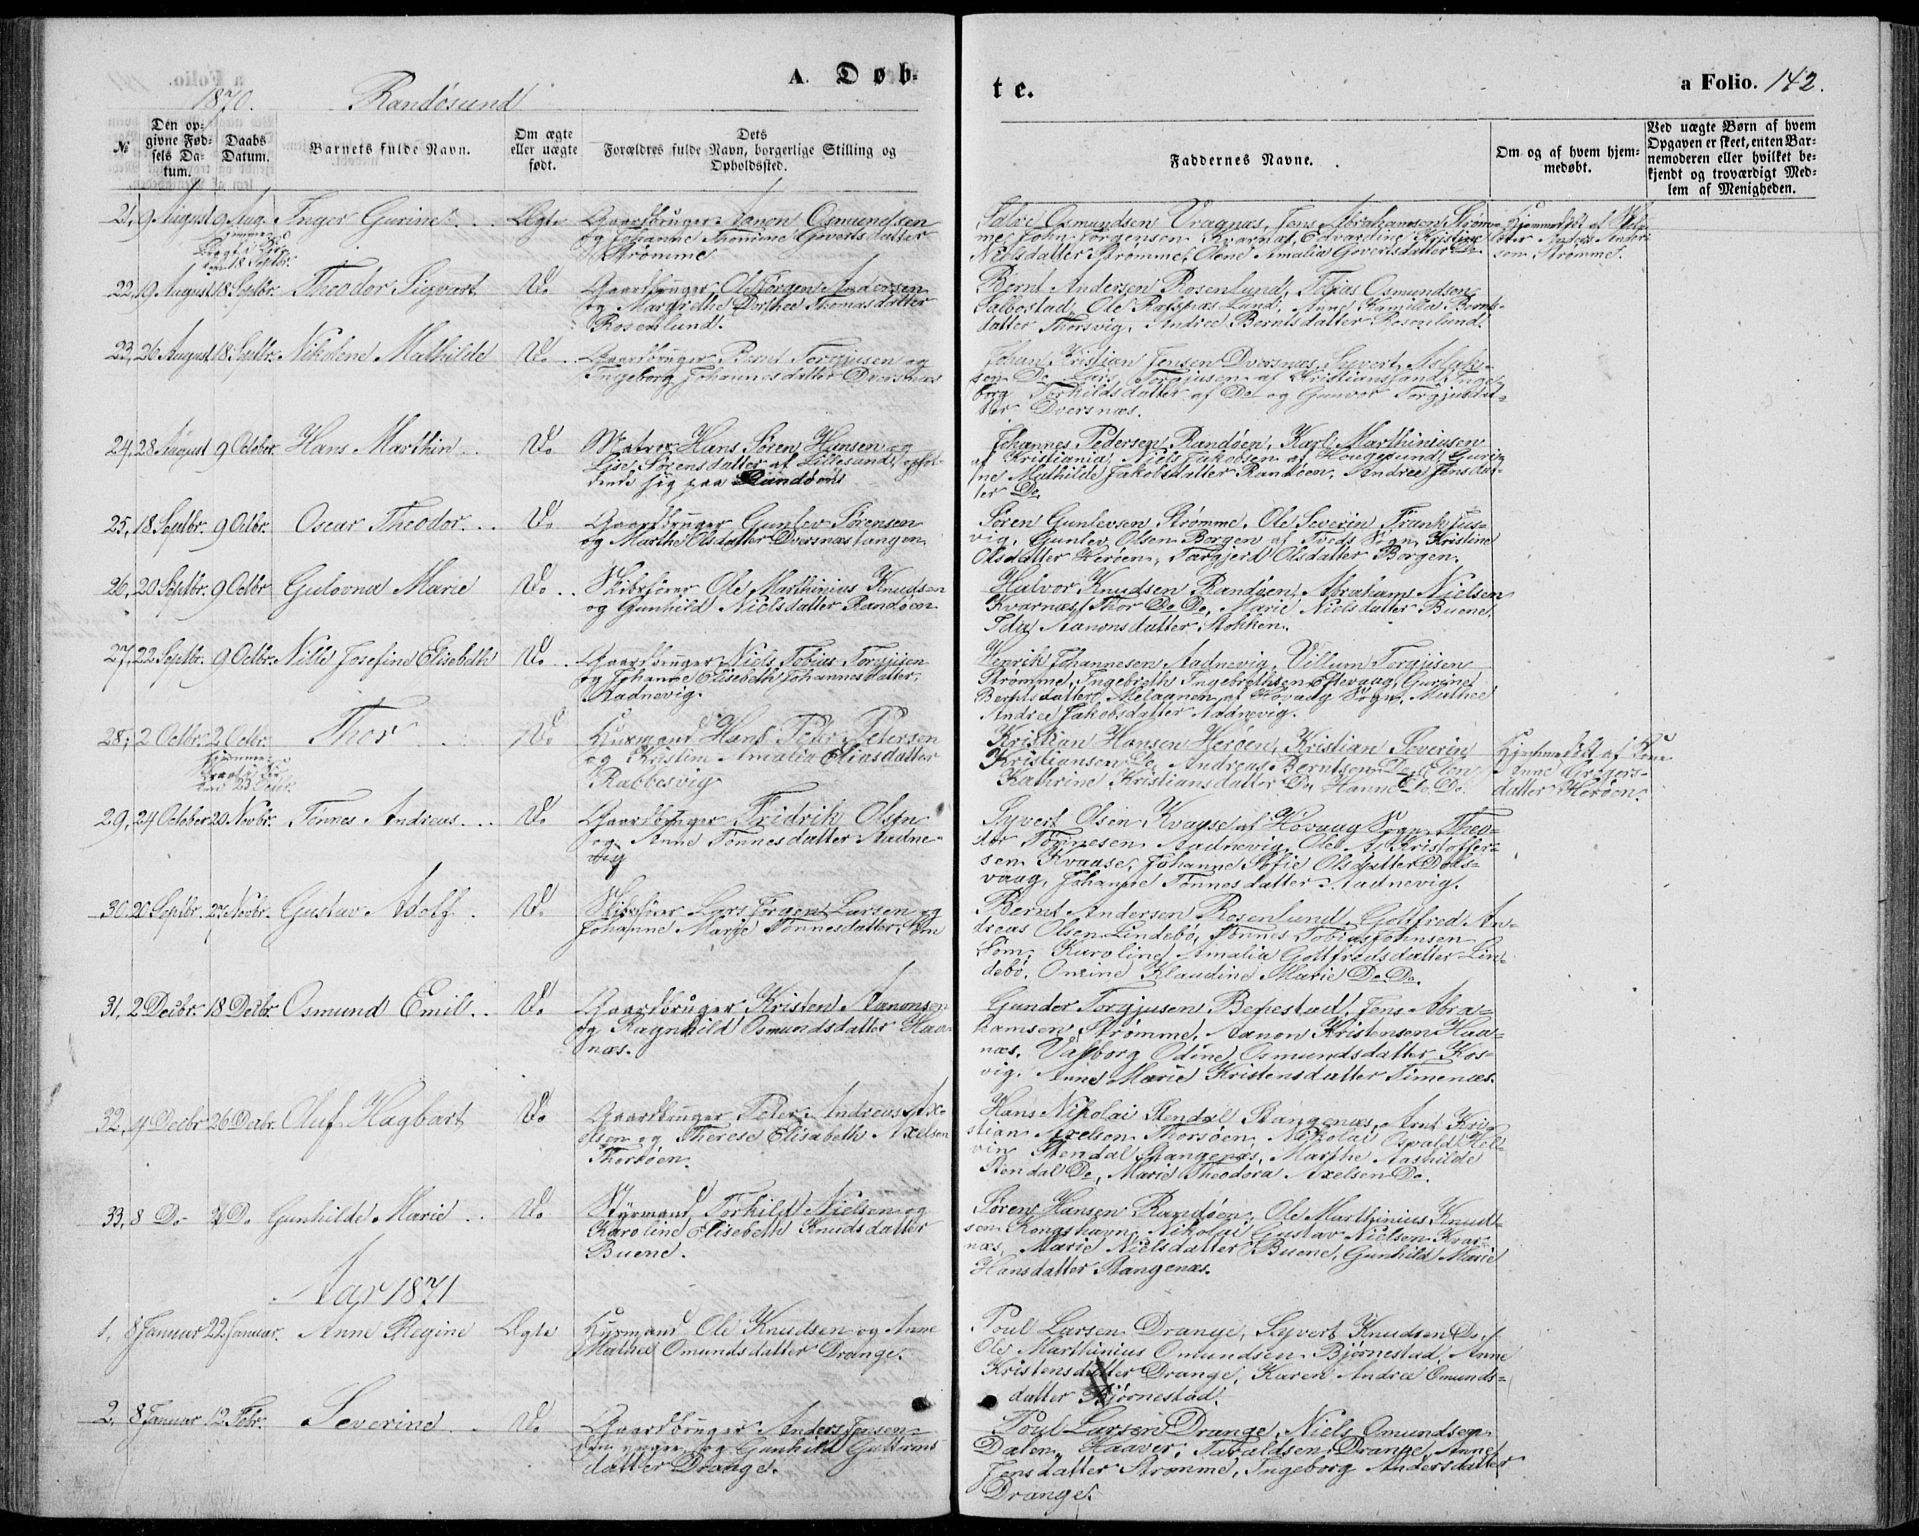 A. Døb-
te.
a Folio. 142.
1870. Randøsund
№
Den opgivne Fødsels Datum.
Daabs Datum.
Barnets fulde Navn.
Om ægte eller uægte født.
Dets Forældres fulde Navn, borgerlige Stilling og Opholdssted.
Faddernes Navne.
Om og af hvem hjemmedøbt.
Ved uægte Børn af hvem Opgaven er skeet, enten Barnemoderen eller hvilket bekjendt og troværdigt Medlem af Menigheden.
21, 9 August 9 Aug. Inger Gurine. Ægte Gaardbruger Aanon Osmundsen
hjemme
Bragt i Kir
den 18 Septbr.
og Johanne Thomine Govertsdatter
Strømme
Osmundsen Vragnæs, Jens Abrahamsen Strøm-
me, John Jørgensen Kvarnæs, Edvardine Kristine
Nielsdatter Strømme, Olene Amalia Govertsdatter Do
Hjemmedøbt af
Anders
sen Strømme.
22, 19 August 18 Septbr. Theodor Sigvart Do Gaardbruger Ole Jørgen Andersen
og Margrethe Dorthea Thomasdatter
Rosenlund.
Bernt Andersen Rosenlund, Tobias Osmundsen
Salbostad, Ole Rasmus Lund, Anne Kamilla Bernts-
datter Thorsvig, Andrea Berntsdatter Rosenlund.
23, 26 August 18 Septbr. Nikolene Mathilde Do Gaardbruger Bernt Torgjusen og
Ingeborg Johannesdatter Dversnæs
Johan Kristian Jensen Dversnæs, Syvert Aslak-
sen Do, Lars Torgjusen af Kristianssand, Inge-
borg Torkildsdatter af Do og Gunvor Torgjusdat-
ter Dversnæs.
24, 28 August 9 October. Hans Marthin Do Matros Hans Søren Hansen og
Lise Sørensdatter af Lillesand, ophol-
dende sig paa Randøen
Johannes Pedersen Randøen, Karl Marthiniussen
af Kristiania, Niels Jakobsen af Hougesund, Guri-
ne Mathilde Jakobsdatter Randøen, Andrea Jensdat-
ter Do
25, 18 Septbr. 9 Octbr. Oscar Theodor. Do Gaardbruger Gunlev Sørensen
og Marthe Olsdatter Dversnæstangen
Søren Gunlevsen Strømme, Ole Severin Frank Fus-
vig, Gunlev Olsen Borgen af Tveds Sogn, Kristine
Olsdatter Herøen, Targjerd Olsdatter Borgen.
26, 20 Septbr. 9 Octbr Gulovna Marie Do Skibsfører Ole Marthinius Knudsen
og Gunhild Nielsdatter Randøen
Halvor Knudsen Randøen, Abraham Nielsen
Kvarnæs, Thor Do Do, Marie Nielsdatter Buene,
Ida Aanonsdatter Stokken.
27, 22 Septbr. 9 Octbr. Nille Josefine Elisebeth Do Gaardbruger Niels Tobias Torgjusen
og Johanne Elisebeth Johannesdatter
Aadnevig.
Henrik Johannesen Aadnevig, Villum Torgjusen
Strømme, Ingebreth Ingebrethsen Eftevaag, Gurine
Berntsdatter Melaanen af Høvaag Sogn, Mathea
Andrea Jakobsdatter Aadnevig.
28, 2 Octbr. 2 Octbr. Thor Do Husmand Hans Peter Petersen
hjemme
og Kristine Amalia Eliasdatter
Rabbesvig
Kristian Hansen Herøen, Kristian Severin
Kristiansen Do, Andreas Berntsen Do, Elen
Kathrine Kristiansdatter Do, Hanne Do Do.
Hjemmedøbt af
Anne Gregers-
datter Herøen.
29, 24 October 20 Novbr. Tønnes Andreas. Do Gaardbruger Fridrik Olsen
og Anne Tønnesdatter Aadne-
vig
Syvert Olsen Kvaase af Høvaag Sogn, Theo-
dor Tønnesen Aadnevig, Ole A. Kristoffer-
sen Kvaase, Johanne Sofie Olsdatter Dals-
vaag, Johanne Tønnesdatter Aadnevig.
30, 20 Septbr. 27 Novbr. Gustav Adolf. Do Skibsfører Lars Jørgen Larsen og
Johanne Marie Tønnesdatter Søm
Bernt Andersen Rosenlund, Gottfred An-
dreas Olsen Lindebø, Tønnes Tobias Johnsen
Søm, Karoline Amalia Gottfredsdatter Lin-
debø, Onsine Klaudine Marie Do Do.
31, 2 Decbr. 18 Decbr. Osmund Emil. Do Gaardbruger Kristen Aanonsen
og Ragnhild Osmundsdatter Haa-
næs.
Gunder Torgjusen Bekestad, Jens Abra-
hamsen Strømme, Aanon Kristensen Haa-
næs, Valborg Odine Osmundsdatter Kos-
vig, Anne Marie Kristensdatter Timenæs.
32, 4 Decbr 26 Decbr. Oluf Hagbart Do Gaardbruger Peter Andreas Ax-
elsen og Therese Elisabeth Axelsen
Thorsøen.
Hans Nikolai Stendal Stangenæs, Arnt Kri-
stian Axelsen Thorsøen, Nikolai Osvald Kol-
vin Stendal Stangenæs, Marthe Aashilde
Stendal Do, Marie Theodora Axelsen Do.
33, 8 Do Do Gunhilde Marie Do Styrmand Torkild Nielsen og
Karoline Elisebeth Knudsdatter
Buene.
Søren Hansen Randøen, Ole Marthinius Knud-
sen Kongshavn, Nikolai Gustav Nielsen Kvar-
næs, Marie Nielsdatter Buene, Gunhild Marie
Hansdatter Stangenæs.
Aar 1871
1, 8 Januar 22 Januar. Anne Regine Ægte Husmand Ole Knudsen og Anne
Mathea Omundsdatter Drange.
Poul Larsen Drange, Syvert Knudsen Do,
Ole Marthinius Omundsen Bjørnestad, Anne
Kristensdatter Drange, Karen Andrea Omunds-
datter Bjørnestad.
2, 8 Januar 12 Febr. Severine Do Gaardbruger Anders Jensen
den yngre og Gunhild Guttorms
datter Drange.
Poul Larsen Drange, Niels Omundsen
Dalen, Haaver Taraldsen Drange, Anne
Jensdatter Strømme, Ingeborg Andersdatter
Drange.